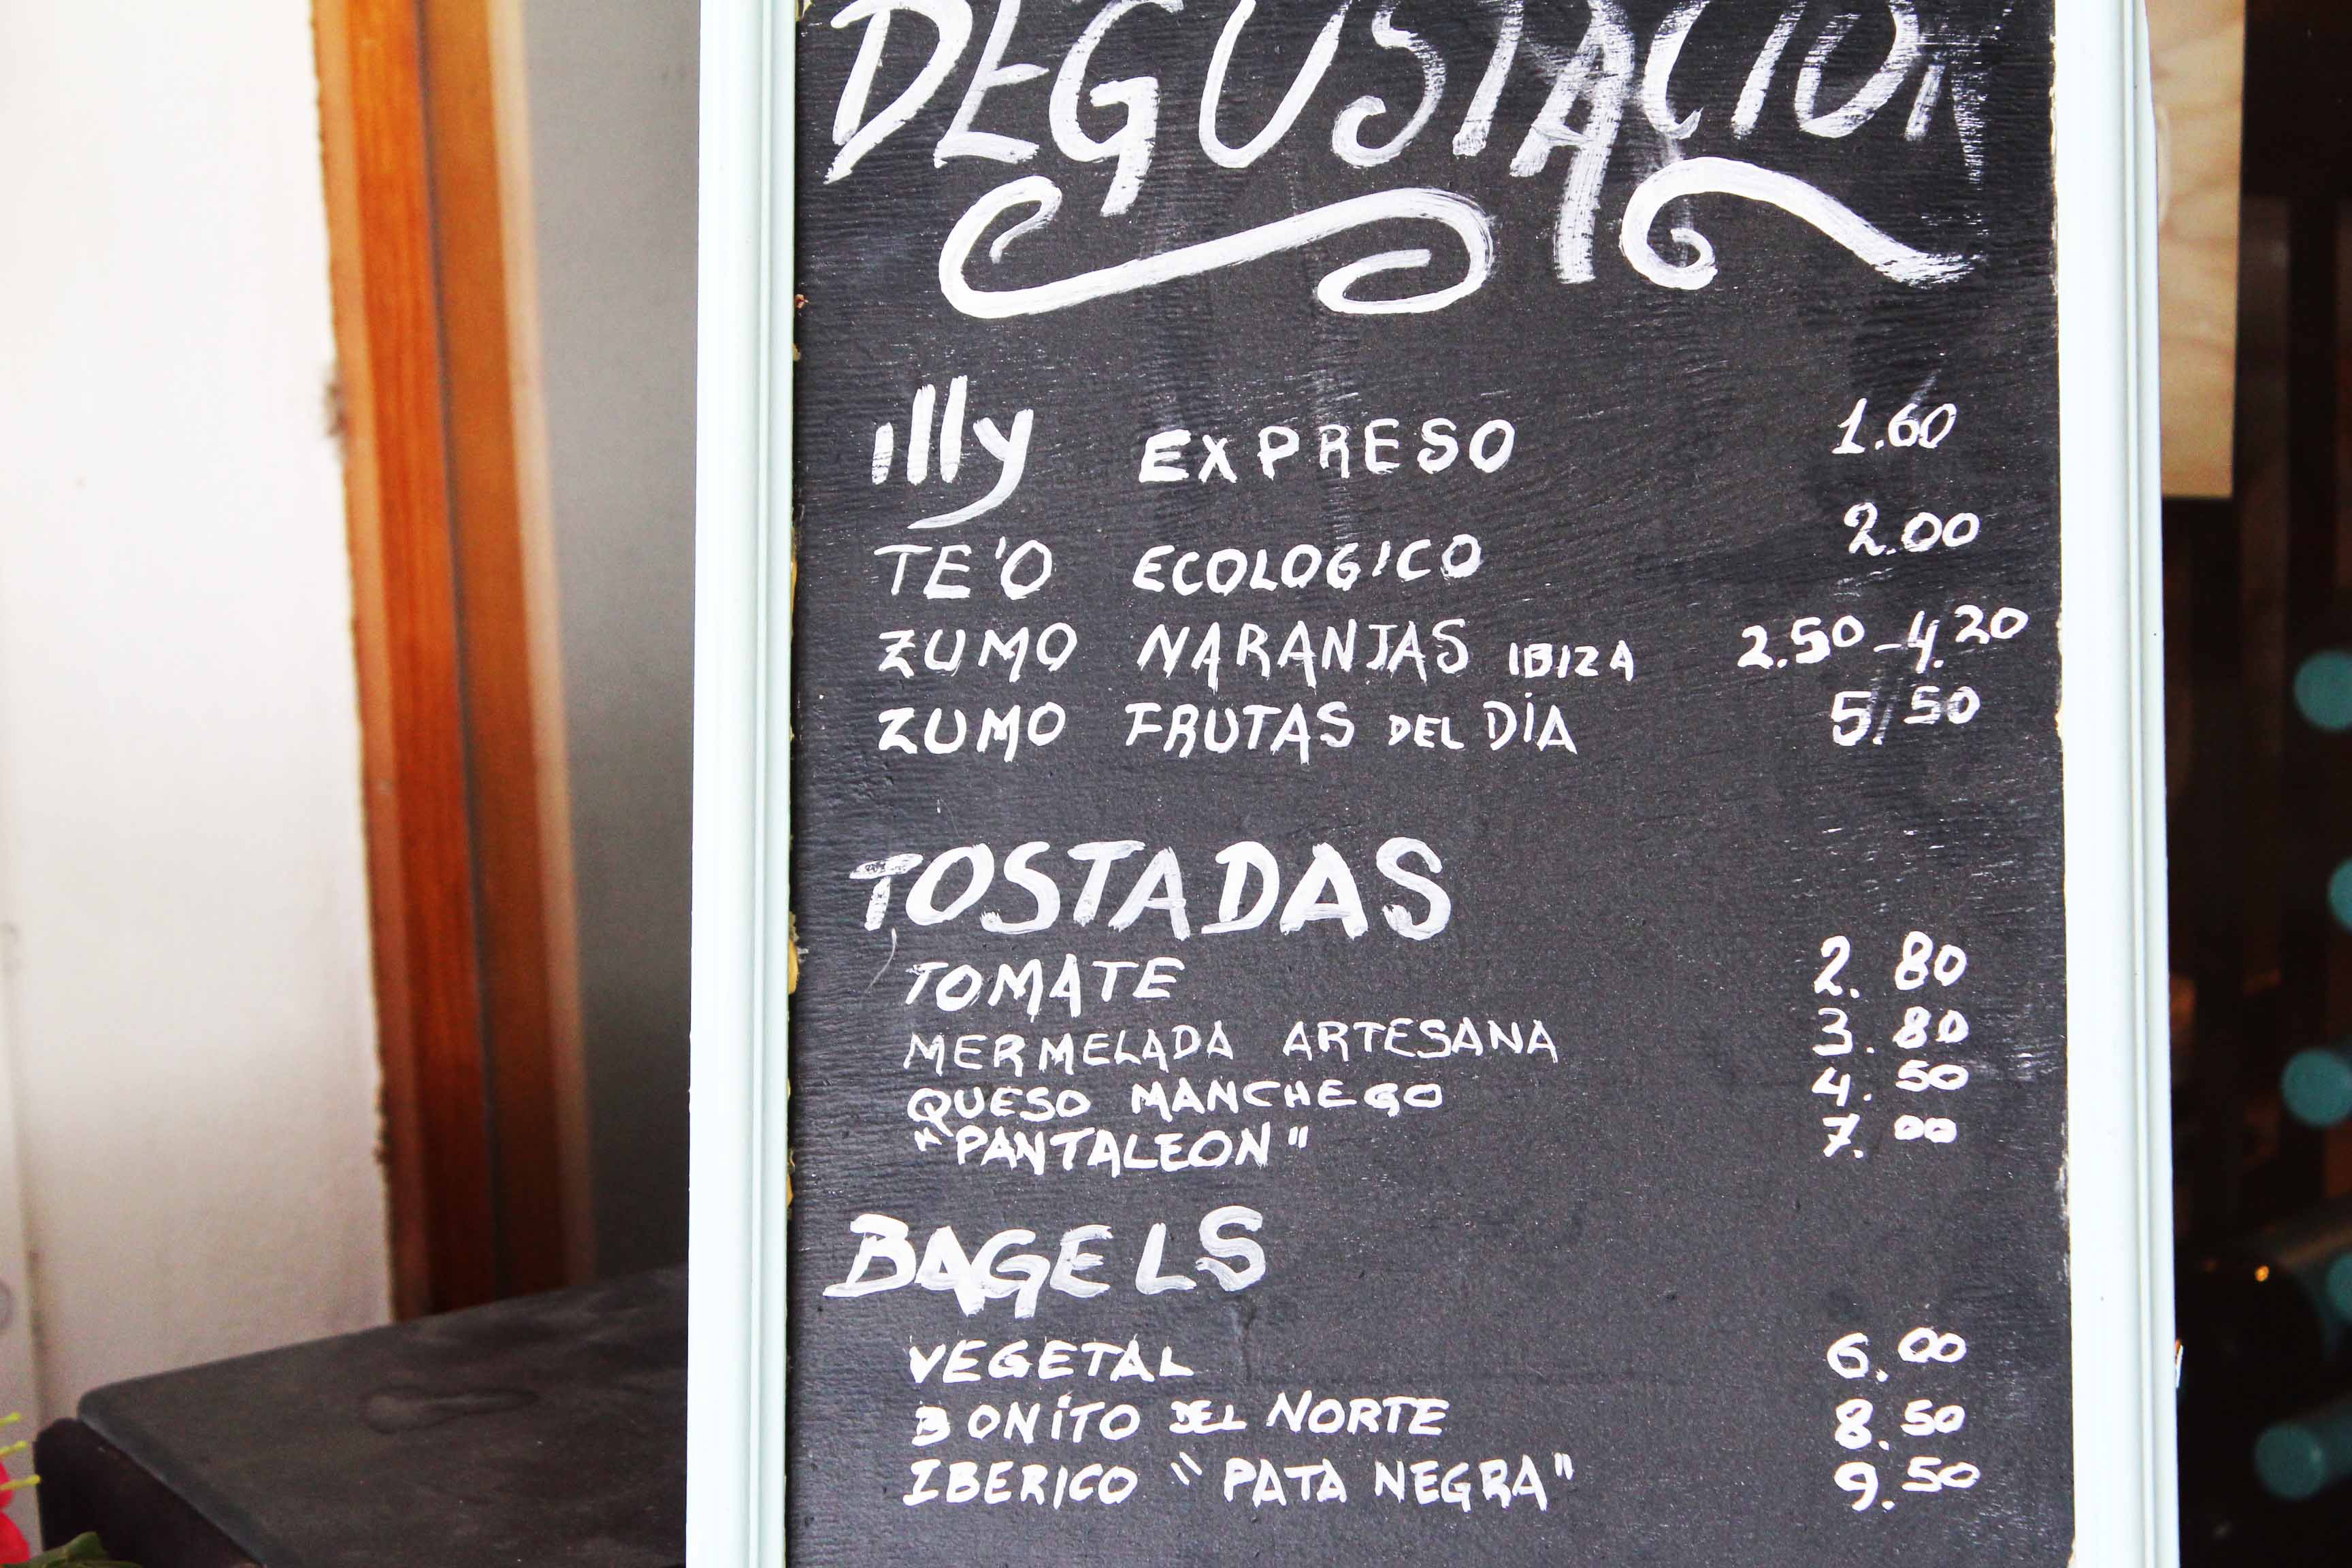 DEGUSTACION
illy EXPRESO 1.60
TE'O ECOLOGICO 2.00
ZUMO NARANJAS IBIZA 2.50-4.20
ZUMO FRUTAS DEL DÍA 5.50
TOSTADAS
TOMATE 2.80
MERMELADA ARTESANA 3.80
QUESO MANCHEGO 4.50
"PANTALEON" 7.00
BAGELS
VEGETAL 6.00
BONÍTO DEL NORTE 8.50
IBERICO "PATA NEGRA" 9.50